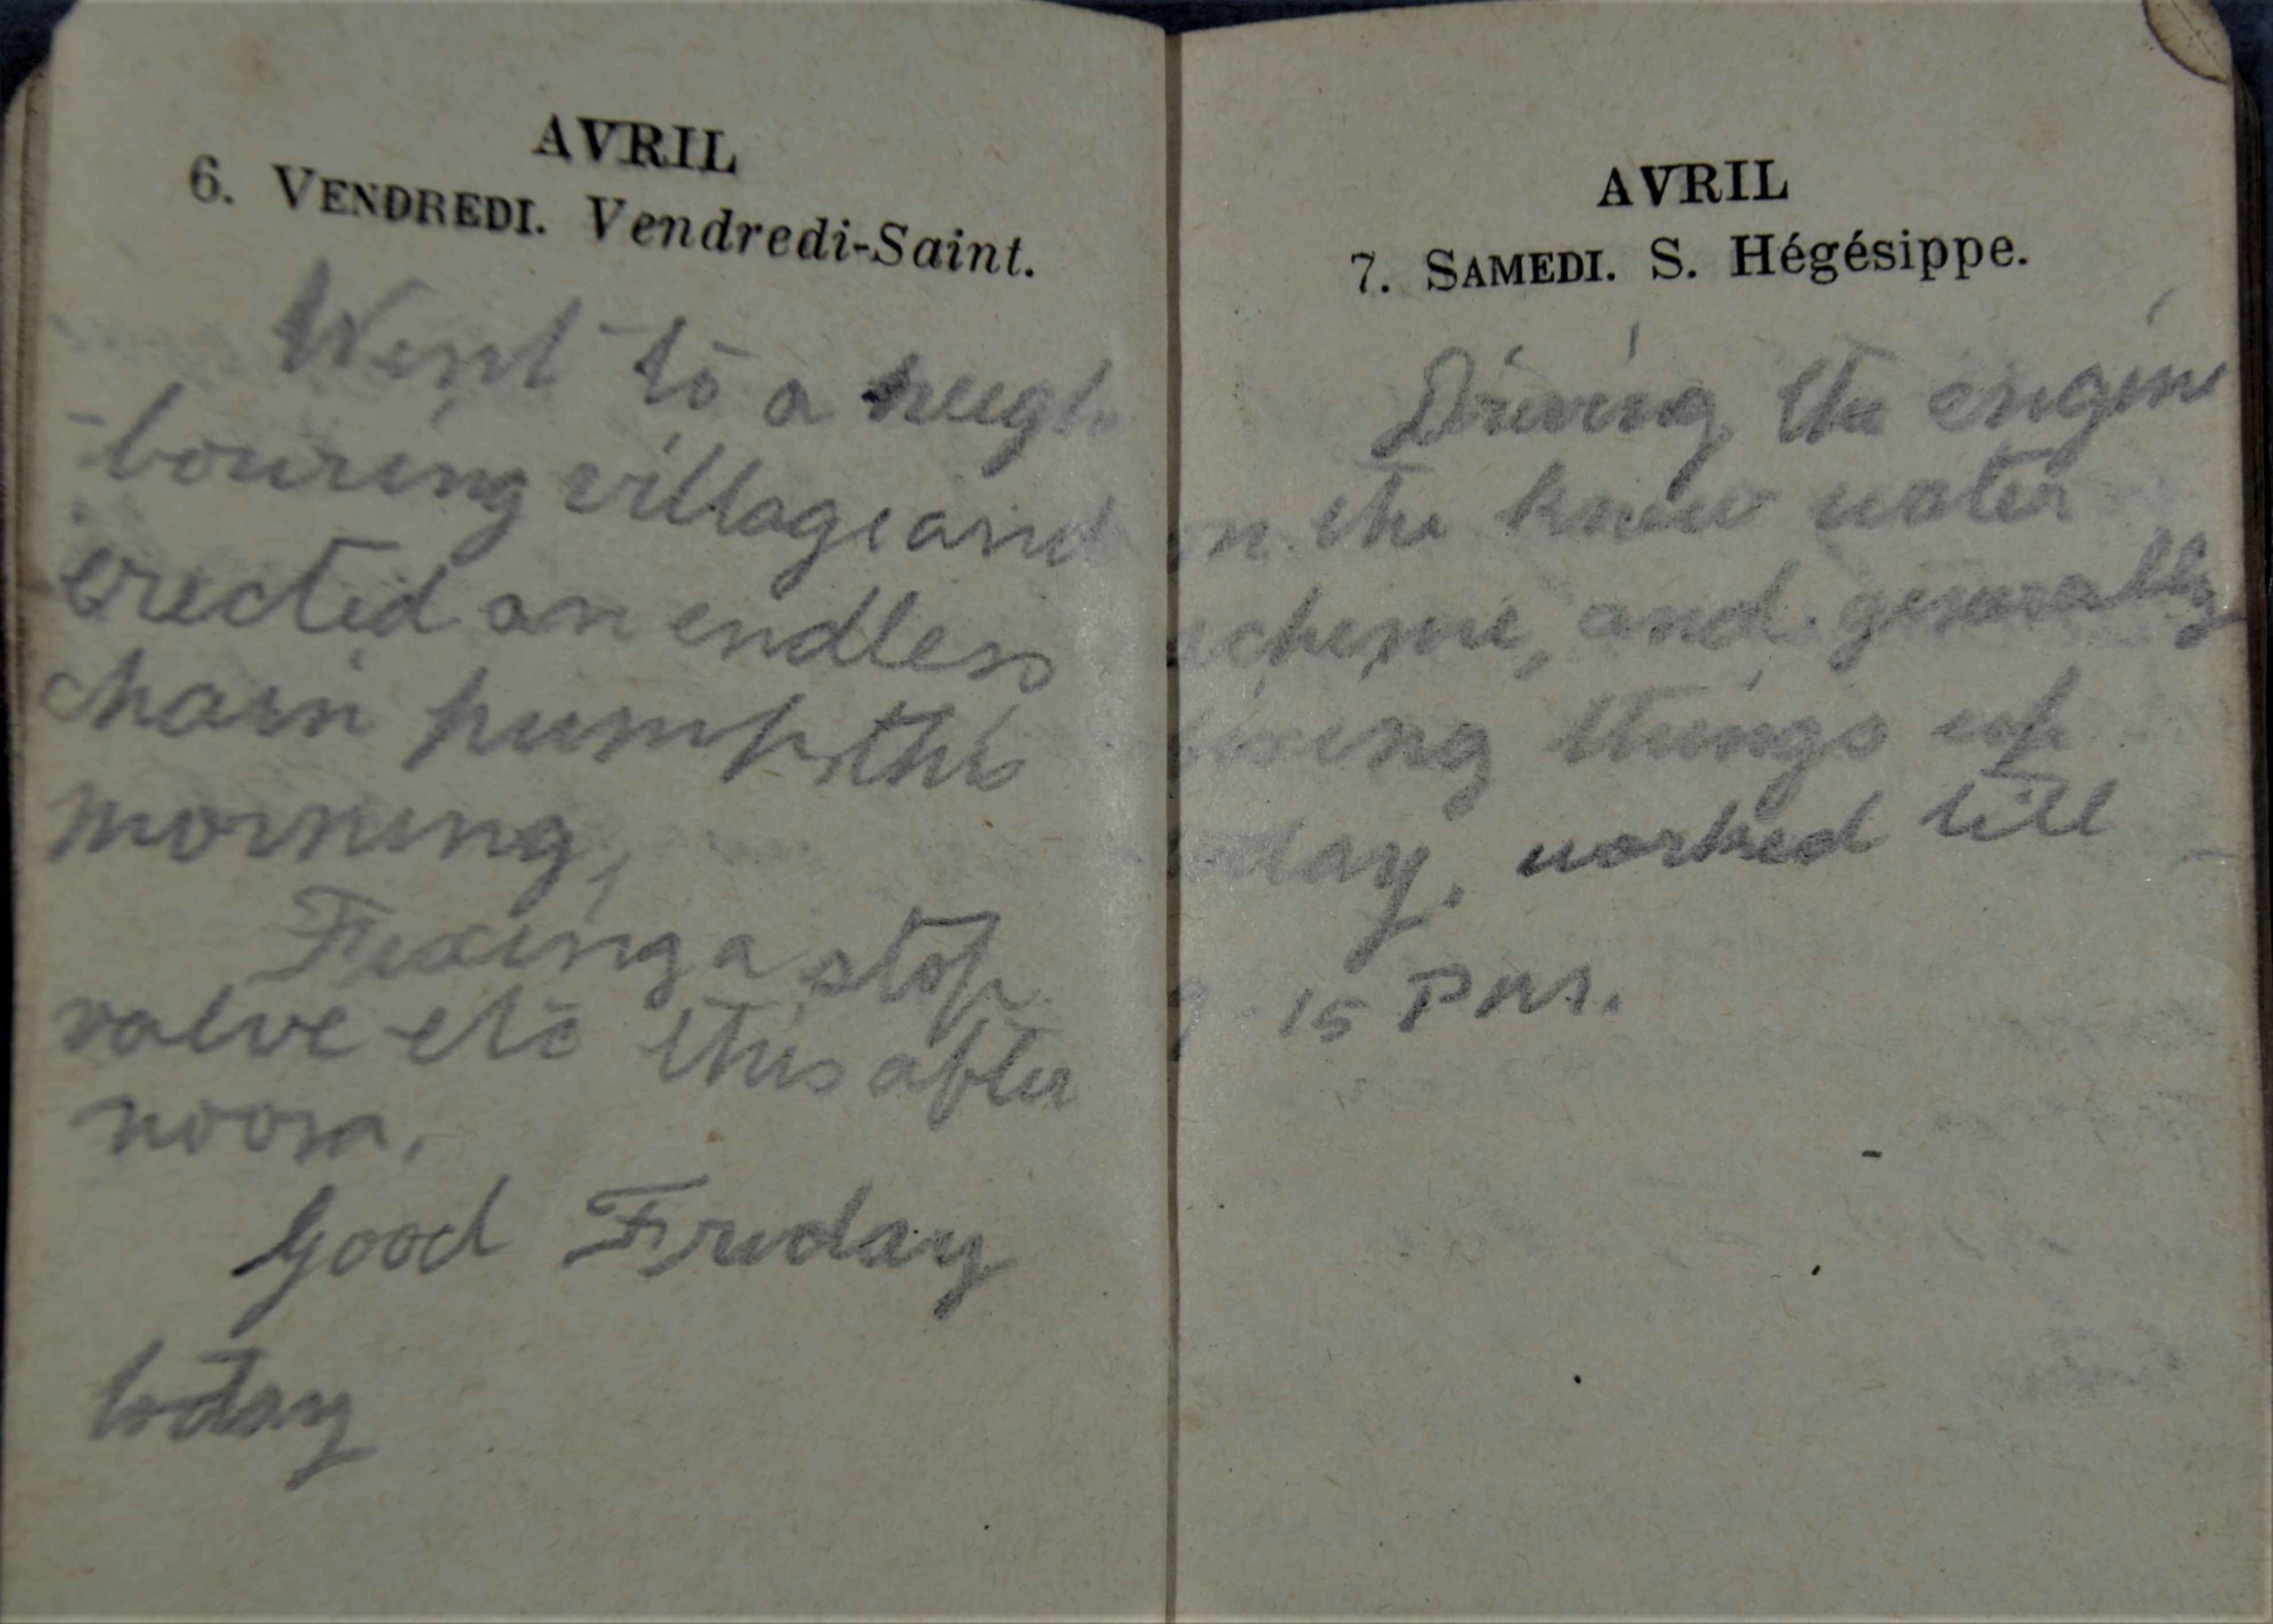 AVRIL
6. VENDREDI. Vendredi-Saint.
Went to a neigh
-bouring village and
erected an endless
chain pump this
morning,
Fixing a stop
valve etc this after
noon.
Good Friday
today
AVRIL
7. SAMEDI. S. Hégésippe.
Driving the engine
on the knew water
scheme, and generally
fixing things up
today. worked till
-15 PM.